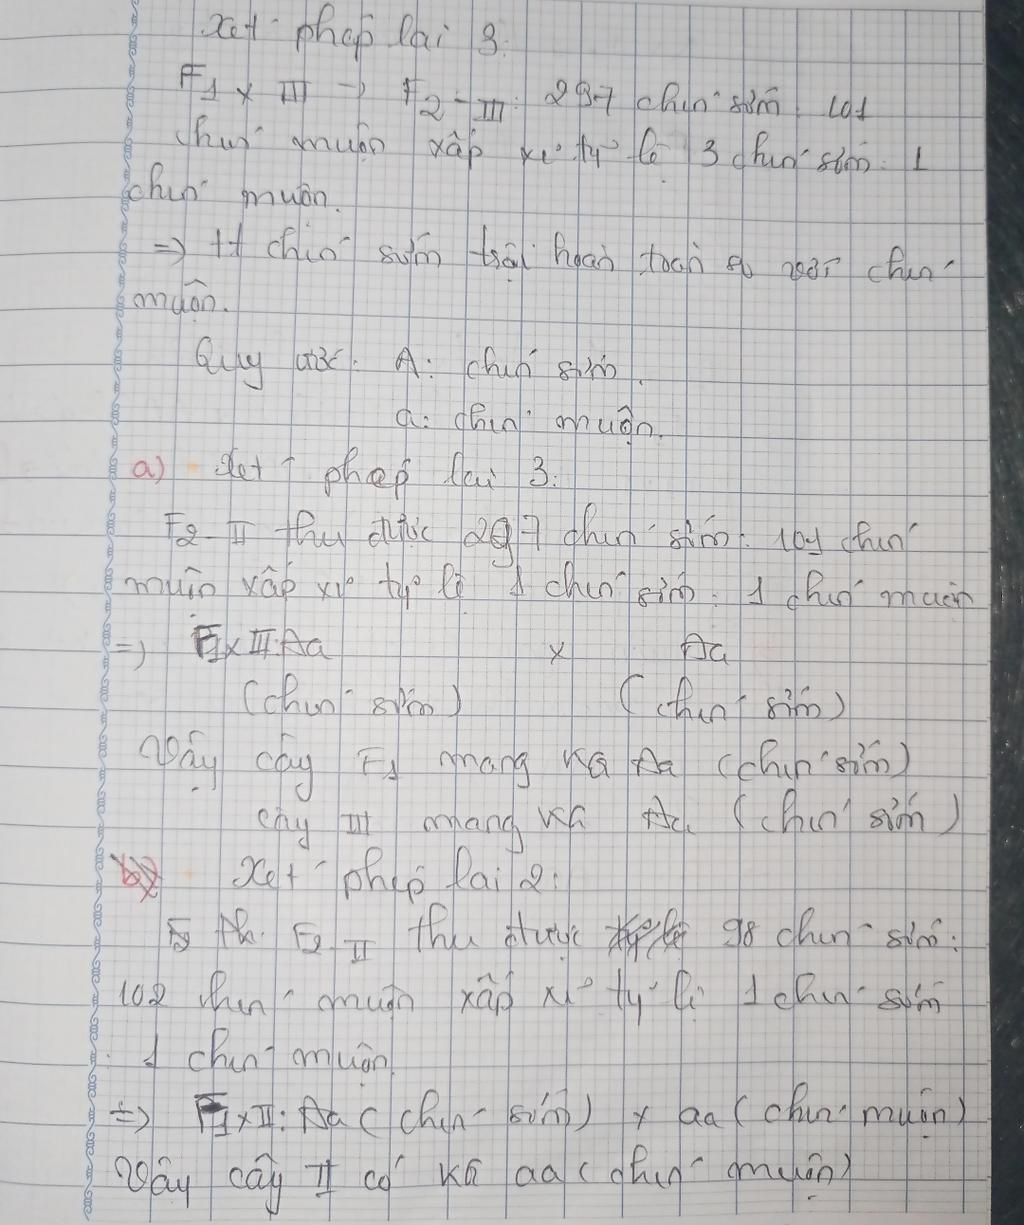 Xét phép lai 3:
F1 x III → F2-III: 297 chín sớm: 101
chín muộn xấp xỉ tỷ lệ 3 chín sớm: 1
chín muộn.
=> tt chín sớm trội hoàn toàn so với chín
muộn.
Quy ước: A: chín sớm.
a: chín muộn.
a) Xét phép lai 3:
F2-II thu được 297 chín sớm: 101 chín
muộn xấp xỉ tỷ lệ 1 chín sớm: 1 chín muộn
=> F1 x III: Aa x Aa
(chín sớm) (chín sớm)
Vậy cây F1 mang KG Aa (chín sớm)
cây III mang KG Aa (chín sớm)
b) Xét phép lai 2:
F2 II thu được 98 chín sớm:
102 chín muộn xấp xỉ tỷ lệ 1 chín sớm
: 1 chín muộn.
=> F1 x II: Aa (chín sớm) x aa (chín muộn)
Vậy cây II có KG aa (chín muộn)